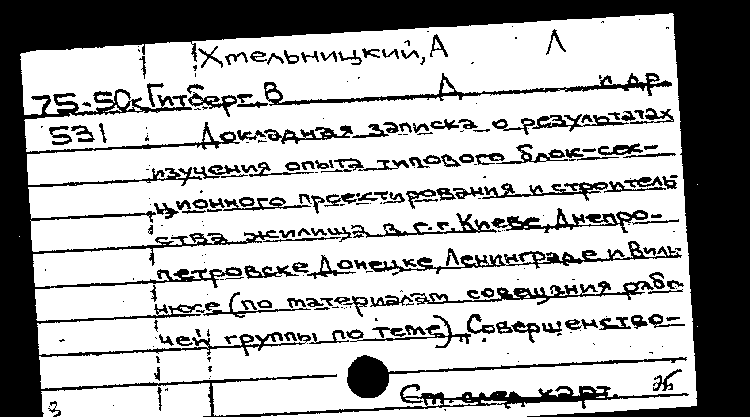 Хмельницкий, А Л
75-50к Гитберг, В Л и др.
531 Докладная записка о результатах
изучения опыта типового блок-сек-
ционного проектирования и строитель
ства жилища в г.г. Киеве, Днепро-
петровске, Донецке, Ленинграде и Виль
нюсе (по материалам совещания рабо-
чей группы по теме) „Совершенство-
См. след. карт. 26
3